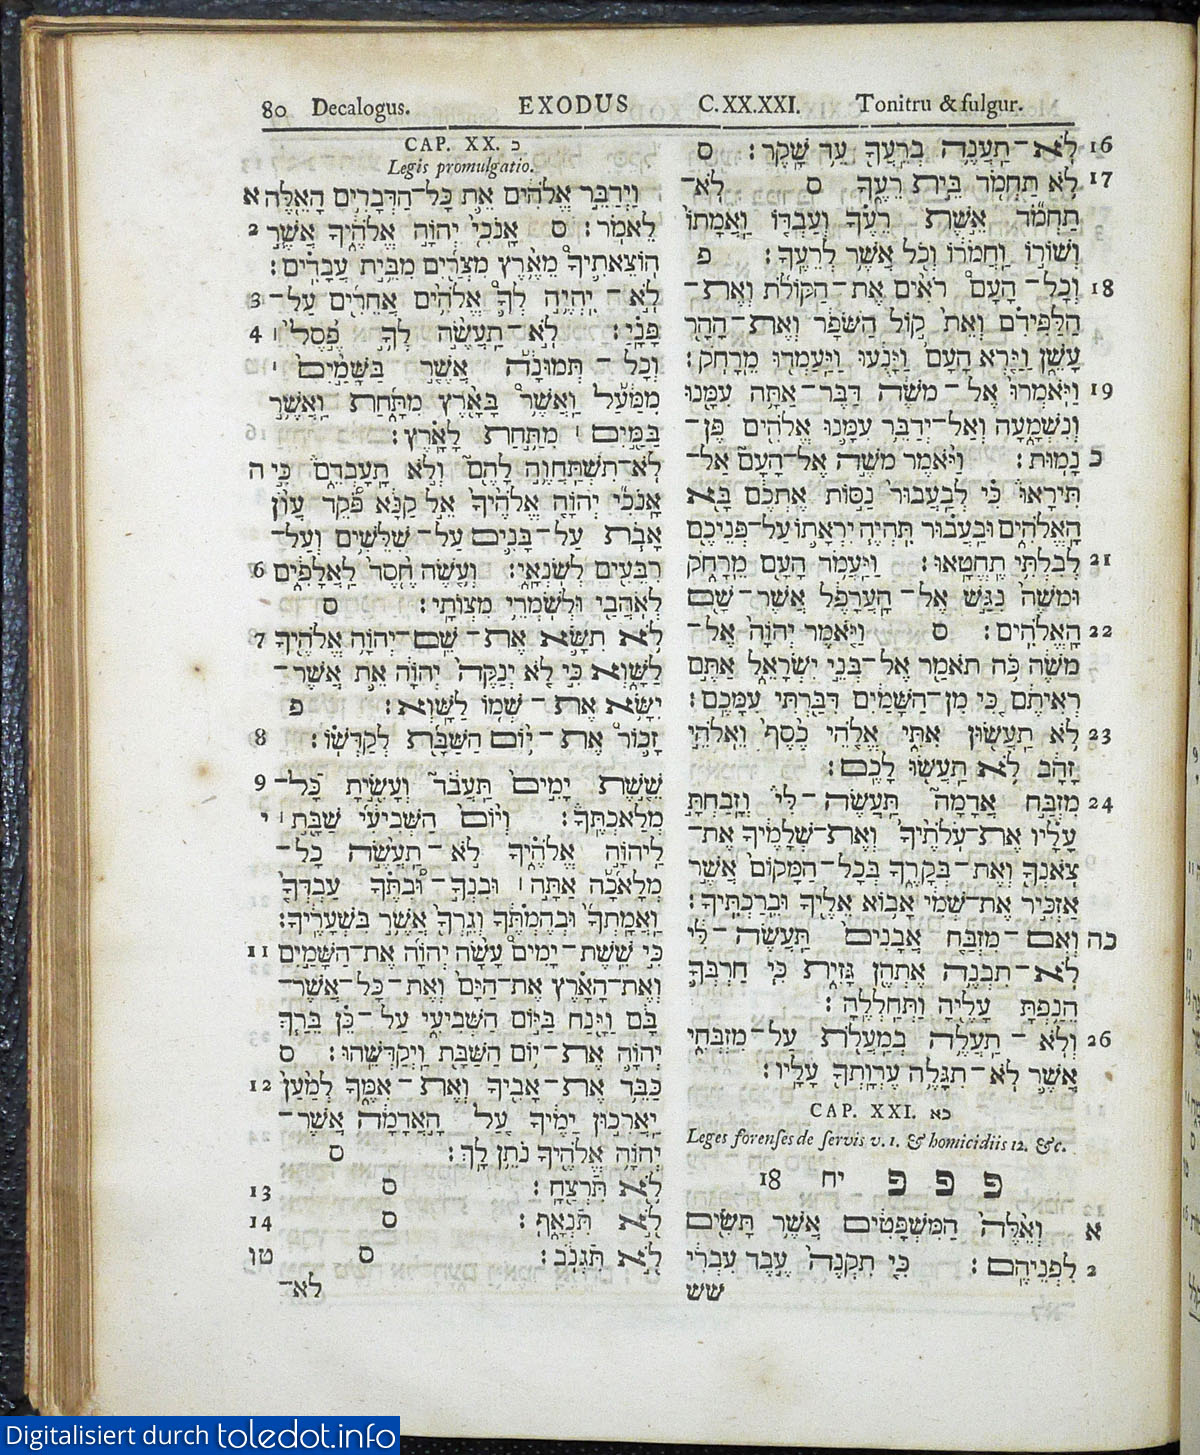 80 Decalogus. EXODUS C.XX.XXI. Tonitru & fulgur.
CAP. XX. כ
Legis promulgatio.
א וַיְדַבֵּר אֱלֹהִים אֵת כָּל־הַדְּבָרִים הָאֵלֶּה
2 לֵאמֹר׃ ס אָנֹכִי יְהוָה אֱלֹהֶיךָ אֲשֶׁר
הוֹצֵאתִיךָ מֵאֶרֶץ מִצְרַיִם מִבֵּית עֲבָדִים׃
3 לֹא־יִהְיֶה לְךָ אֱלֹהִים אֲחֵרִים עַל־
4 פָּנָי׃ לֹא־תַעֲשֶׂה לְךָ פֶסֶל ׀
וְכָל־תְּמוּנָה אֲשֶׁר בַּשָּׁמַיִם ׀
מִמַּעַל וַאֲשֶׁר בָּאָרֶץ מִתָּחַת וַאֲשֶׁר
בַּמַּיִם ׀ מִתַּחַת לָאָרֶץ׃
ה לֹא־תִשְׁתַּחֲוֶה לָהֶם וְלֹא תָעָבְדֵם כִּי
אָנֹכִי יְהוָה אֱלֹהֶיךָ אֵל קַנָּא פֹּקֵד עֲוֹן
אָבֹת עַל־בָּנִים עַל־שִׁלֵּשִׁים וְעַל־
6 רִבֵּעִים לְשֹׂנְאָי׃ וְעֹשֶׂה חֶסֶד לַאֲלָפִים
לְאֹהֲבַי וּלְשֹׁמְרֵי מִצְוֹתָי׃ ס
7 לֹא תִשָּׂא אֶת־שֵׁם־יְהוָה אֱלֹהֶיךָ
לַשָּׁוְא כִּי לֹא יְנַקֶּה יְהוָה אֵת אֲשֶׁר־
יִשָּׂא אֶת־שְׁמוֹ לַשָּׁוְא׃ פ
8 זָכוֹר אֶת־יוֹם הַשַּׁבָּת לְקַדְּשׁוֹ׃
9 שֵׁשֶׁת יָמִים תַּעֲבֹד וְעָשִׂיתָ כָּל־
י מְלַאכְתֶּךָ׃ וְיוֹם הַשְּׁבִיעִי שַׁבָּת ׀
לַיהוָה אֱלֹהֶיךָ לֹא־תַעֲשֶׂה כָל־
מְלָאכָה אַתָּה ׀ וּבִנְךָ־וּבִתֶּךָ עַבְדְּךָ
וַאֲמָתְךָ וּבְהֶמְתֶּךָ וְגֵרְךָ אֲשֶׁר בִּשְׁעָרֶיךָ׃
11 כִּי שֵׁשֶׁת־יָמִים עָשָׂה יְהוָה אֶת־הַשָּׁמַיִם
וְאֶת־הָאָרֶץ אֶת־הַיָּם וְאֶת־כָּל־אֲשֶׁר־
בָּם וַיָּנַח בַּיּוֹם הַשְּׁבִיעִי עַל־כֵּן בֵּרַךְ
יְהוָה אֶת־יוֹם הַשַּׁבָּת וַיְקַדְּשֵׁהוּ׃ ס
12 כַּבֵּד אֶת־אָבִיךָ וְאֶת־אִמֶּךָ לְמַעַן
יַאֲרִכוּן יָמֶיךָ עַל הָאֲדָמָה אֲשֶׁר־
יְהוָה אֱלֹהֶיךָ נֹתֵן לָךְ׃ ס
13 לֹא תִּרְצָח׃ ס
14 לֹא תִּנְאָף׃ ס
טו לֹא תִּגְנֹב׃ ס
לא־
16 לֹא־תַעֲנֶה בְרֵעֲךָ עֵד שָׁקֶר׃ ס
17 לֹא תַחְמֹד בֵּית רֵעֶךָ ס לֹא־
תַחְמֹד אֵשֶׁת רֵעֶךָ וְעַבְדּוֹ וַאֲמָתוֹ
וְשׁוֹרוֹ וַחֲמֹרוֹ וְכֹל אֲשֶׁר לְרֵעֶךָ׃ פ
18 וְכָל־הָעָם רֹאִים אֶת־הַקּוֹלֹת וְאֶת־
הַלַּפִּידִם וְאֵת קוֹל הַשֹּׁפָר וְאֶת־הָהָר
עָשֵׁן וַיַּרְא הָעָם וַיָּנֻעוּ וַיַּעַמְדוּ מֵרָחֹק׃
19 וַיֹּאמְרוּ אֶל־מֹשֶׁה דַּבֶּר־אַתָּה עִמָּנוּ
וְנִשְׁמָעָה וְאַל־יְדַבֵּר עִמָּנוּ אֱלֹהִים פֶּן־
כ נָמוּת׃ וַיֹּאמֶר מֹשֶׁה אֶל־הָעָם אַל־
תִּירָאוּ כִּי לְבַעֲבוּר נַסּוֹת אֶתְכֶם בָּא
הָאֱלֹהִים וּבַעֲבוּר תִּהְיֶה יִרְאָתוֹ עַל־פְּנֵיכֶם
21 לְבִלְתִּי תֶחֱטָאוּ׃ וַיַּעֲמֹד הָעָם מֵרָחֹק
וּמֹשֶׁה נִגַּשׁ אֶל־הָעֲרָפֶל אֲשֶׁר־שָׁם
22 הָאֱלֹהִים׃ ס וַיֹּאמֶר יְהוָה אֶל־
מֹשֶׁה כֹּה תֹאמַר אֶל־בְּנֵי יִשְׂרָאֵל אַתֶּם
רְאִיתֶם כִּי מִן־הַשָּׁמַיִם דִּבַּרְתִּי עִמָּכֶם׃
23 לֹא תַעֲשׂוּן אִתִּי אֱלֹהֵי כֶסֶף וֵאלֹהֵי
זָהָב לֹא תַעֲשׂוּ לָכֶם׃
24 מִזְבַּח אֲדָמָה תַּעֲשֶׂה־לִּי וְזָבַחְתָּ
עָלָיו אֶת־עֹלֹתֶיךָ וְאֶת־שְׁלָמֶיךָ אֶת־
צֹאנְךָ וְאֶת־בְּקָרֶךָ בְּכָל־הַמָּקוֹם אֲשֶׁר
אַזְכִּיר אֶת־שְׁמִי אָבוֹא אֵלֶיךָ וּבֵרַכְתִּיךָ׃
כה וְאִם־מִזְבַּח אֲבָנִים תַּעֲשֶׂה־לִּי
לֹא־תִבְנֶה אֶתְהֶן גָּזִית כִּי חַרְבְּךָ
הֵנַפְתָּ עָלֶיהָ וַתְּחַלְלֶהָ׃
26 וְלֹא־תַעֲלֶה בְמַעֲלֹת עַל־מִזְבְּחִי
אֲשֶׁר לֹא־תִגָּלֶה עֶרְוָתְךָ עָלָיו׃
CAP. XXI. כא
Leges forenses de servis v. 1. & homicidiis 12. &c.
פ פ פ יח 18
א וְאֵלֶּה הַמִּשְׁפָּטִים אֲשֶׁר תָּשִׂים
2 לִפְנֵיהֶם׃ כִּי תִקְנֶה עֶבֶד עִבְרִי
שש
Digitalisiert durch toledot.info